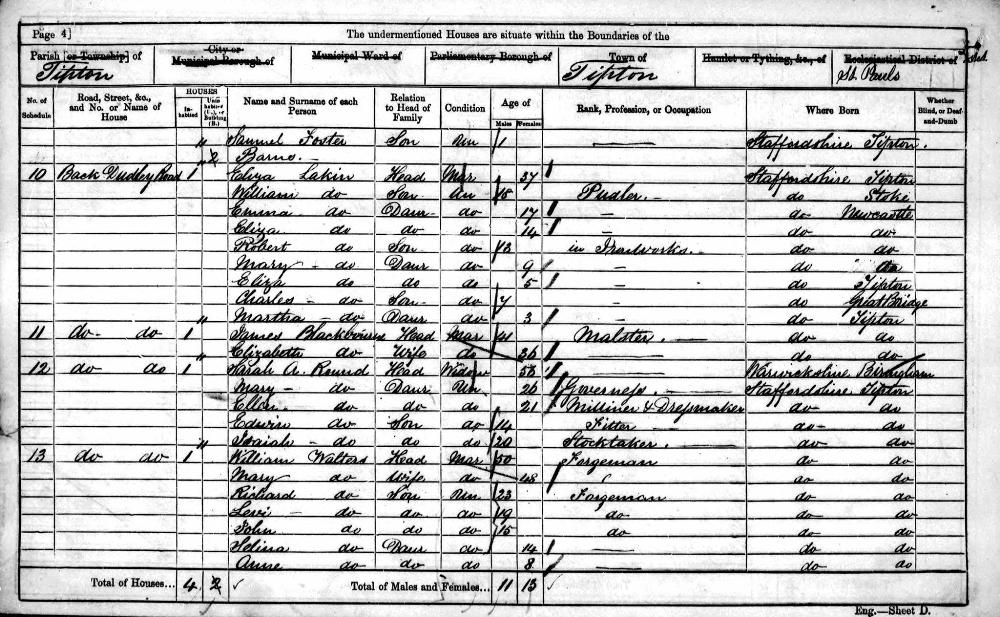 Page 4]
The undermentioned Houses are situate within the Boundaries of the
Parish [or Township] of
City or Municipal Borough of
Municipal Ward of
Parliamentary Borough of
Town of
Hamlet or Tything, &c., of
Ecclesiastical District of
Tipton Tipton St. Pauls
No. of Schedule
Road, Street, &c., and No. or Name of House
HOUSES
In-habited
Unin-habited (U.), or Building (B.)
Name and Surname of each Person
Relation to Head of Family
Condition
Age of
Males Females
Rank, Profession, or Occupation
Where Born
Whether Blind, or Deaf-and-Dumb
Samuel Foster Son Un 1 — Staffordshire Tipton.
2 Barns. —
10 Back Dudley Road 1 Eliza Lakin Head Mar 37 Staffordshire Tipton
William do Son Un 18 Pudler. — do Stoke
Emma do Daur do 17 — do Newcastle
Eliza do do do 14 — do do
Robert do Son do 13 in Ironworks. — do do
Mary — do Daur do 9 — do do
Eliza do do do 5 — do Tipton
Charles — do Son do 7 — do Great Bridge
Martha — do Daur do 3 — do Tipton
11 do do 1 James Blackbourn Head Mar 41 Malster. — do do
Elizabeth do Wife do 26 — do do
12 do do 1 Sarah A. Round Head Widow 56 — Warwickshire Birmingham
Mary — do Daur Un 26 Governess — Staffordshire Tipton
Ellen. do do do 21 Milliner & Dressmaker do do
Edwin do Son do 14 Fitter — do do
Isaiah — do do do 20 Stocktaker. — do do
13 do do 1 William Walters Head Mar 50 Forgeman do do
Mary do Wife do 48 do do
Richard do Son Un 23 Forgeman do do
Levi — do do do 19 do do do
John do do do 15 do do do
Selina do Daur 14 — do do
Anne do do do 8 — do do
Total of Houses... 4 2 Total of Males and Females... 11 13
Eng.—Sheet D.